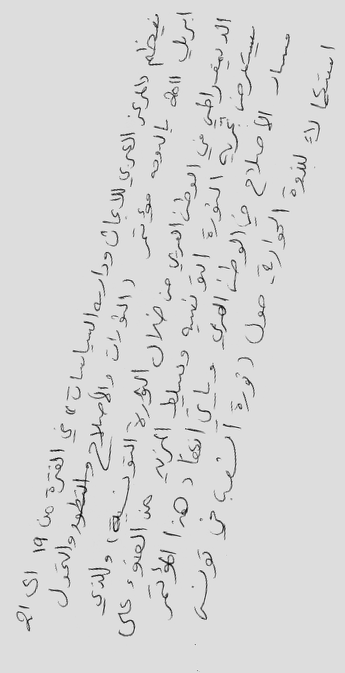 ينظم المركز العربي للابحاث ودراسة السياسات في الفترة من ١٩ الى ٢١
ابريل بالدوحة مؤتمر (الثورات والاصلاح والتطور والتحول
الديمقراطي في الوطن العربي من خلال الثورة التونسية) والذي
سيستعرض تجربة الثورة التونسية وتسليط المزيد من الضوء على
مسار الاصلاح في الوطن العربي وياتي انعقاد هذا المؤتمر
استكمالا للندوة الحوارية حول (ثورة الشعب في تونس